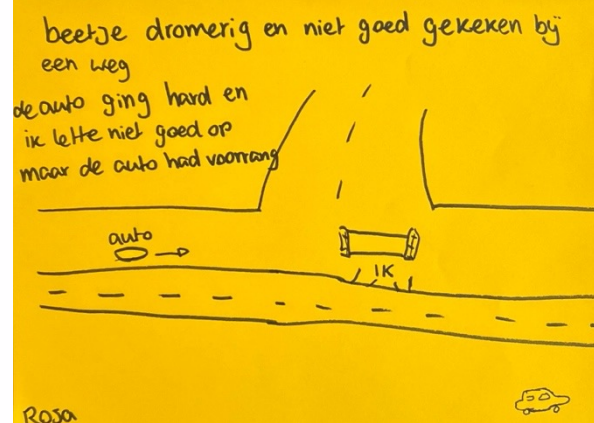 beetje dromerig en niet goed gekeken bij
een weg
de auto ging hard en
ik lette niet goed op
maar de auto had voorrang
auto
IK
Rosa